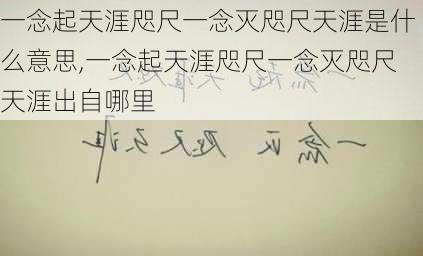 一念起天涯咫尺一念灭咫尺天涯是什
么意思,一念起天涯咫尺一念灭咫尺
天涯出自哪里
一念起 天涯咫尺
一念灭 咫尺天涯